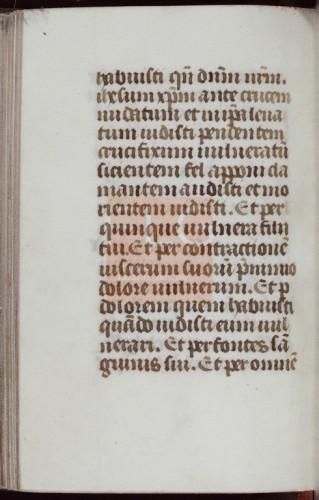 habuisti qn̄ dnm̄ nrm̄.
ihesum xp̄m ante crucem
nudatum et in p̄ alena
tum uidisti pendentem
crucifixum uulneratū
sicientem fel apponi cla
mantem audisti et mo
rientem uidisti. Et per
quinque uulnera filii
tui. Et per contractionē
uiscerum suorū p̄ nimio
dolore uulnerum. Et p̄
dolorem quem habuisti
quādo uidisti eum uul
nerari. Et per fontes sā
guinis sui. Et per omnē